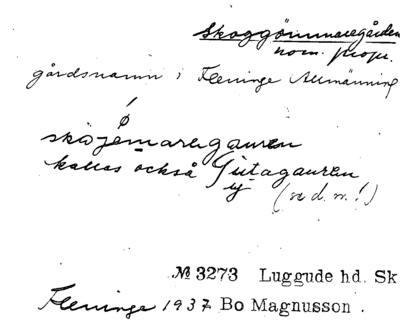 Skoggömmaregården
nom. propr.
gårdsnamn i Fleninge Allmänning
skojemaregauren
kallas också Gutagauren
(se d. n.!)
№ 3273 Luggude hd. Sk
Fleninge 1937 Bo Magnusson.